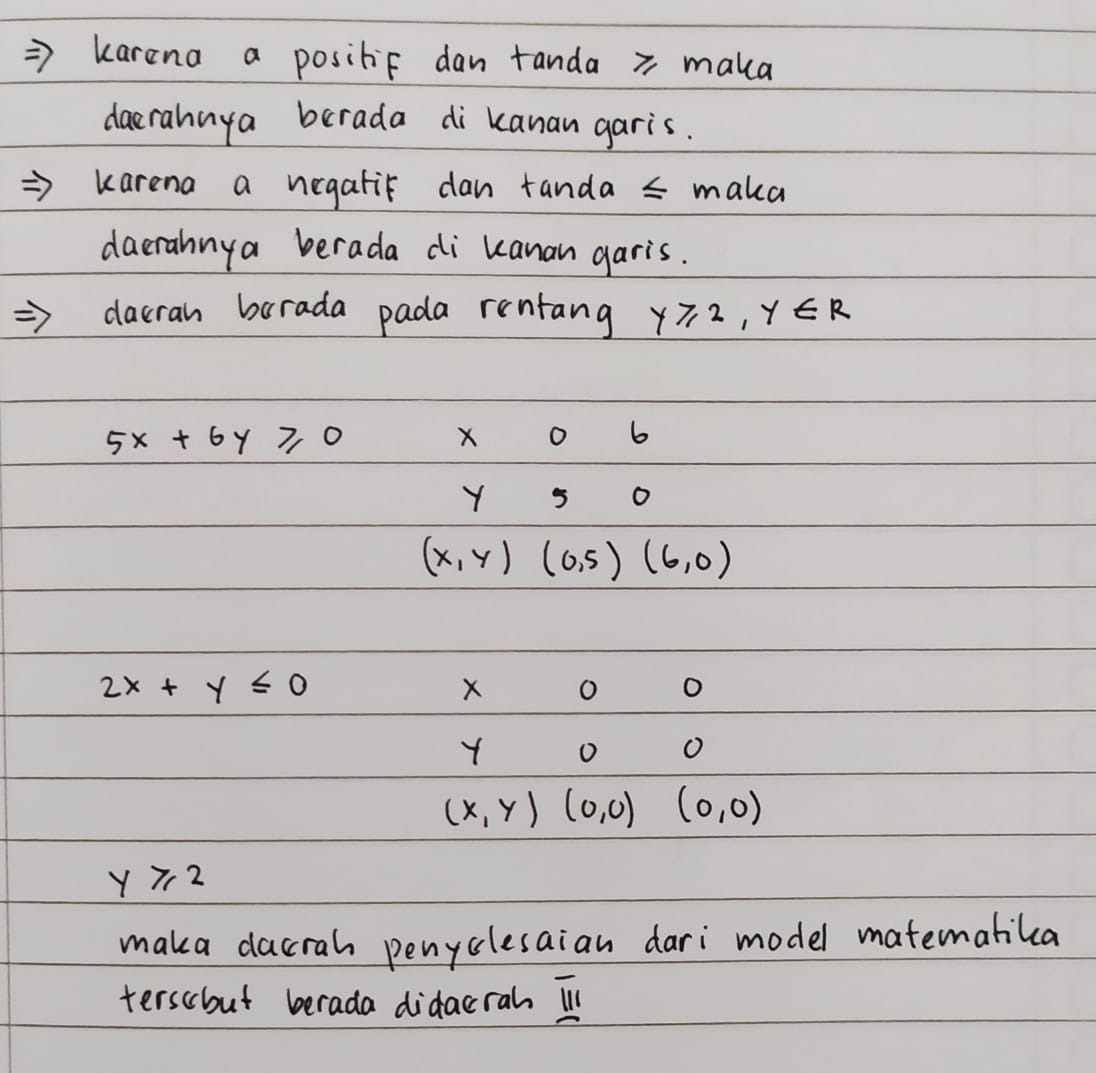 ⇒ karena a positif dan tanda ≥ maka
daerahnya berada di kanan garis.
⇒ karena a negatif dan tanda ≤ maka
daerahnya berada di kanan garis.
⇒ daerah berada pada rentang y ≥ 2, y ∈ R
5x + 6y ≥ 0 x 0 6
y 5 0
(x, y) (0,5) (6,0)
2x + y ≤ 0 x 0 0
y 0 0
(x, y) (0,0) (0,0)
y ≥ 2
maka daerah penyelesaian dari model matematika
tersebut berada didaerah III